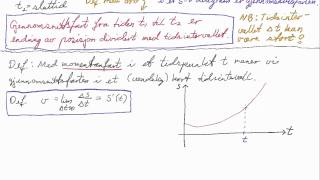 t₂ = sluttid
Gjennomsnittsfart fra tiden t₁ til t₂ er
endring av posisjon dividert med tidsintervallet
NB: Tidsinter-
vallet Δt kan
være stort!
Def: Med momentanfart i et tidspunkt t mener vi
gjennomsnittsfarten i et (uendelig) kort tidsintervall.
Def v = lim Δt→0 Δs/Δt = s'(t)
s
t
t